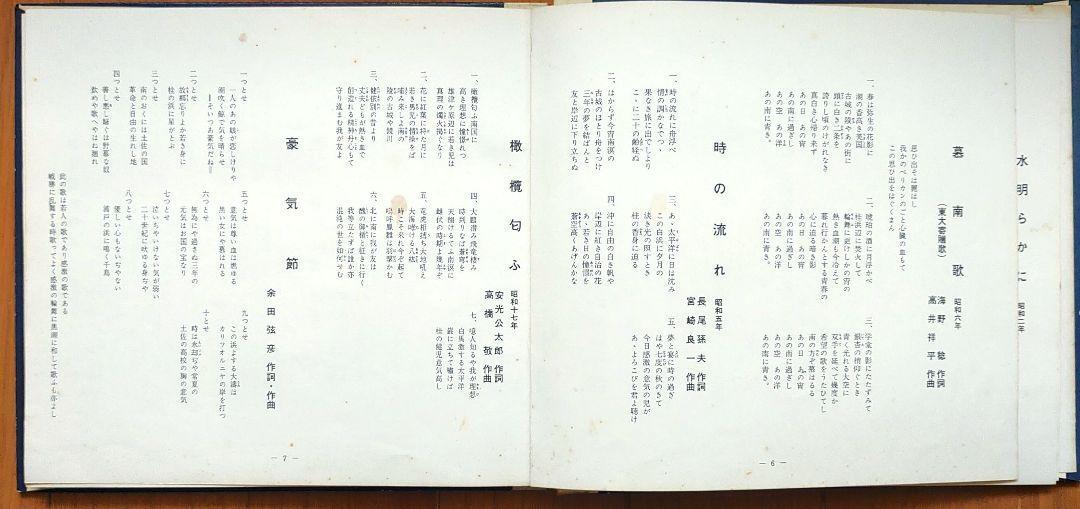 水明らかに
昭和二年
慕南歌
（東大寄贈歌）
昭和六年
海野 稔 作詞
高井祥平 作曲
思ひ出そは麗はし
我かのペリカンのごと心臓の血もて
この思ひ出をはぐくまん
一、春は弥生の花影に
潮の香高き南国の
古城の殿やあの街に
頭に白き二条を
誇りし頃のけがれなき
真白き心帰り来ず
あの南に過ぎし
あの日 あの宵
あの空 あの洋
あの南に青き。
二、琥珀の酒に月浮かべ
桂浜辺に焚火して
輪舞に更けしかの宵の
熱き血潮も今冷えて
暮れ行かんとする青春の
心に迫る暗き影
あの日 あの宵
あの南に過ぎし
あの空 あの洋
あの南に青き。
三、学堂の影にたたずみて
銀杏の精仰ぐとき
青く光れる大空に
双手を延べて幾度か
希望の歌をうたひてし
南の方ぞ慕はるる
あの日 あの宵
あの南に過ぎし
あの空 あの洋
あの南に青き。
時の流れ
昭和五年
長尾猛夫 作詞
宮崎良一 作曲
一、時の流れに舟浮べ
情の調かなでつゝ
果なき旅に出でしより
こゝに二十の齢経ぬ
二、はからず今宵南溟の
古城のほとり舟をつけ
三年の夢を結ばんと
友と岸辺に下り立ちぬ
三、あゝ太平洋に日は沈み
この白浜に夕月の
淡き光の照すとき
桂の香身に迫る
四、沖に自由の白き帆や
岸辺に紅き自治の花
あゝ若き日の憧憬を
蒼空高くあげんかな
五、夢と宴に時の過ぎ
はや七度の秋のきて
今日感激の意気の児が
あゝよろこびを君よ聴け
― 6 ―
橄欖匂ふ
昭和十七年
安光公太郎 作詞
高橋 敬 作曲
一、橄欖匂ふ南国に
高き理想に憧憬れつ
雄津ヶ原辺に若き児は
真理の燭火掲ぐなり
二、花に紅葉に将た月に
若き男児の情操をば
育み来しよ南の
陵の古城や鏡川
三、健依別の昔より
丈夫どもが熱き血で
創造れる精神丹心もて
守り運まむ我が友よ
四、大鵬潜み飛竜棲み
時到りなば蒼穹を
天翔けるてふ南溟に
雌伏の時期よ幾年ぞ
五、竜虎相搏ち大地吼え
大海嘯ける八紘
時こそ来れ今ぞ起て
嗚呼鳳雛は羽撃かむ
六、北に南に我が友は
醜の御楯と征きにけり
我等立たずば誰か亦
混沌の世を如何せむ
七、億人知るや我が理想
白馬激する太平洋
巌に立ちて嘯けば
桂の健児意気高し
豪気節
余田弦彦 作詞・作曲
一つとせ
一人のあの娘が恋しけりや
潮吹く鯨で気を晴らせ
―そいつあ豪気だね―
二つとせ
故郷忘りよか若き身に
桂の浜に星がとぶ
三つとせ
南のおくには土佐の国
革命と自由の生れし地
四つとせ
善し悪し騒ぐは野暮な奴
飲めや歌へやはね廻れ
五つとせ
意気は尊い血は燃ゆる
黒い女に又惚れる
六つとせ
無為にや過さぬ三年の
元気はお国の宝なり
七つとせ
泣いちやいけない気が弱い
二十世紀に吠ゆる身ぢや
八つとせ
優しい心もないぢやない
浦戸の浜に鳴く千鳥
九つとせ
この浜よする大濤は
カリフオルニヤの岸を打つ
十とせ
時は永遠や常夏の
土佐の高校の胸の意気
此の歌は若人の歌であり感激の歌である
戦勝に乱舞する時歌つてよく感激の輪舞に黒潮に和して歌ふも亦よし
― 7 ―